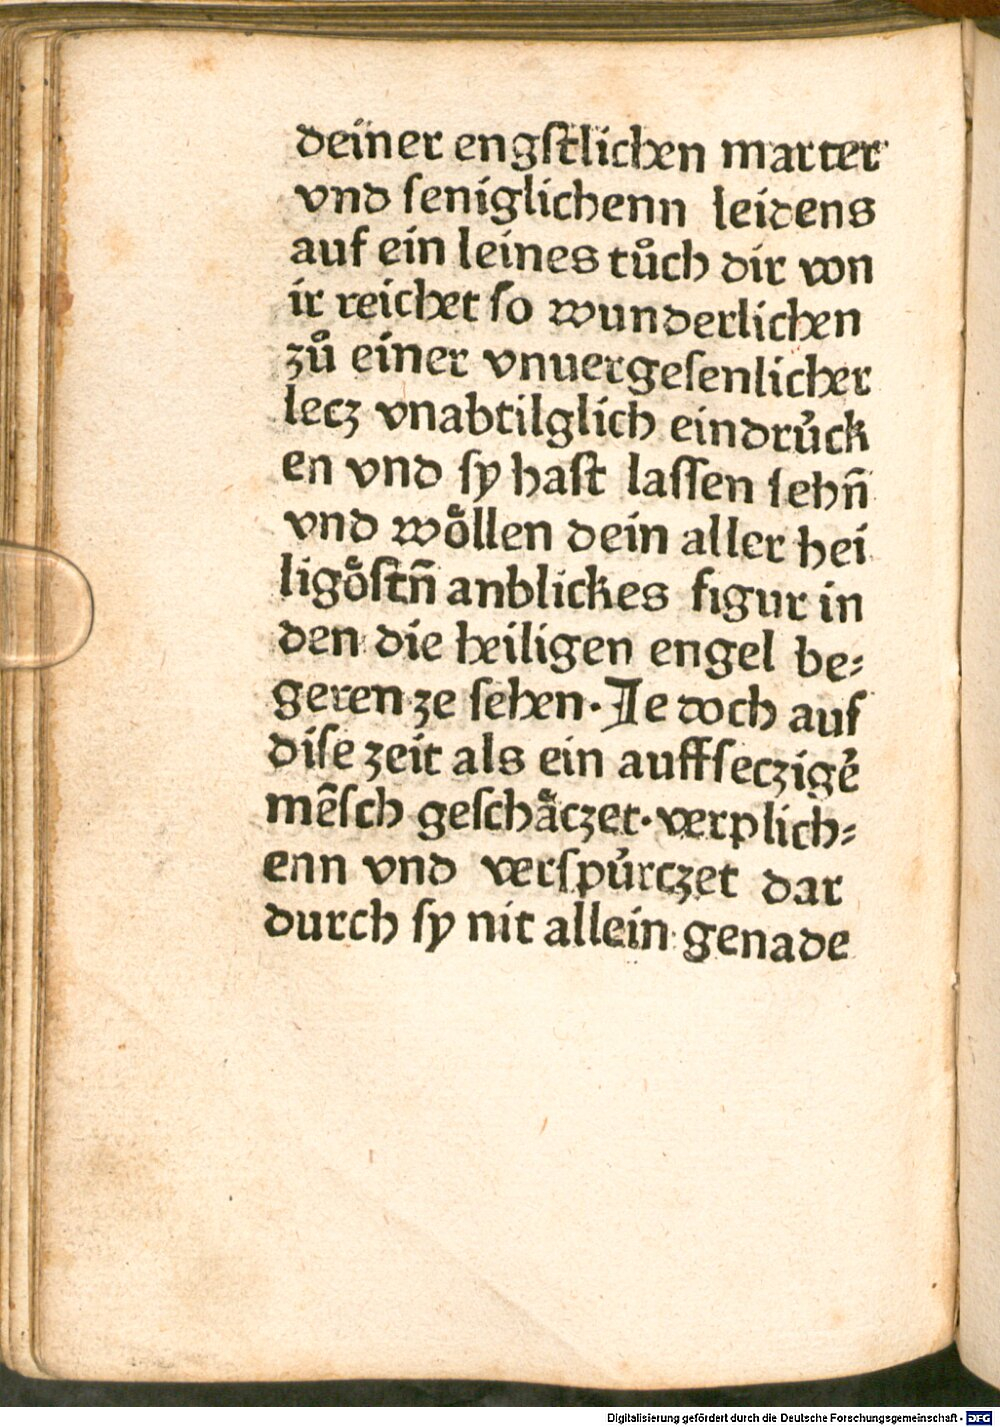 deiner engstlichen marter
vnd seniglichenn leidens
auf ein leines tuͦch dir von
ir reichet so wunderlichen
zuͦ einer vnuergesenlicher
lecz vnabtilglich eindruͤck
en vnd sy hast lassen sehñ
vnd woͤllen dein aller hei
ligoͤstñ anblickes figur in
den die heiligen engel be⸗
geren ze sehen· Je doch auf
dise zeit als ein auffseczigẽ
mẽsch geschaͤczet· verplich⸗
enn vnd verspuͤrczet dar
durch sy nit allein genade
Digitalisierung gefördert durch die Deutsche Forschungsgemeinschaft - DFG